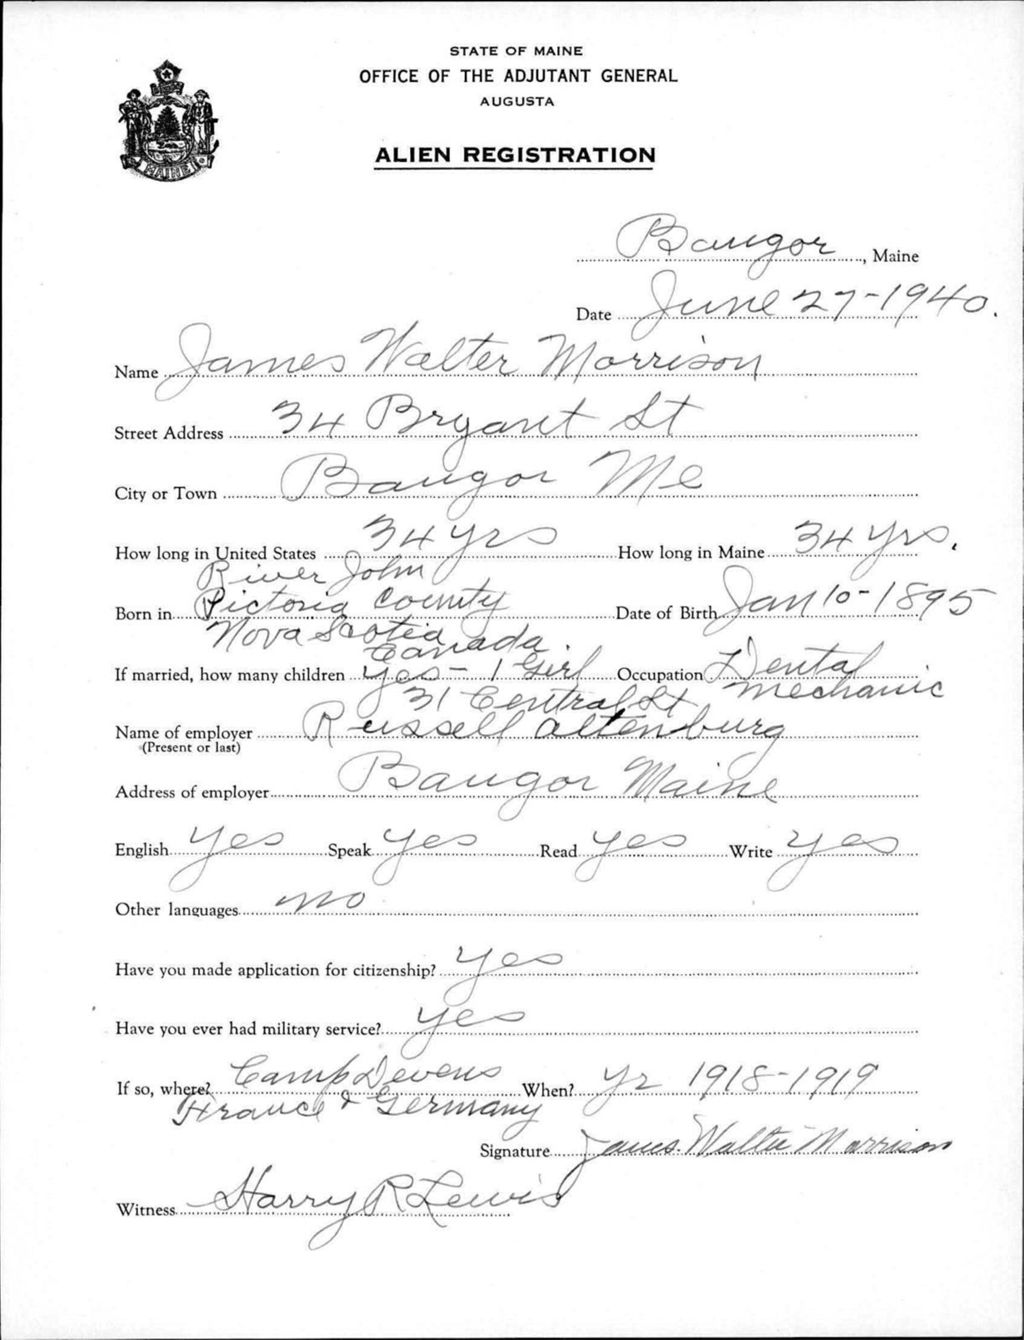 STATE OF MAINE
OFFICE OF THE ADJUTANT GENERAL
AUGUSTA
ALIEN REGISTRATION
MAINE
Bangor, Maine
Date June 27-1940.
Name James Walter Morrison
Street Address 34 Bryant St
City or Town Bangor Me
How long in United States 34 yrs How long in Maine 34 yrs.
River John
Born in Pictoria County Date of Birth Jan 10-1895
Nova Scotia Canada
If married, how many children yes - 1 Girl Occupation Dental Mechanic
31 Central St
Name of employer Russell Altenburg
(Present or last)
Address of employer Bangor Maine
English yes Speak yes Read yes Write yes
Other languages no
Have you made application for citizenship? yes
Have you ever had military service? yes
If so, where? Camp Devens When? yr 1918-1919
France & Germany
Signature James Walter Morrison
Witness Harry R Lewis